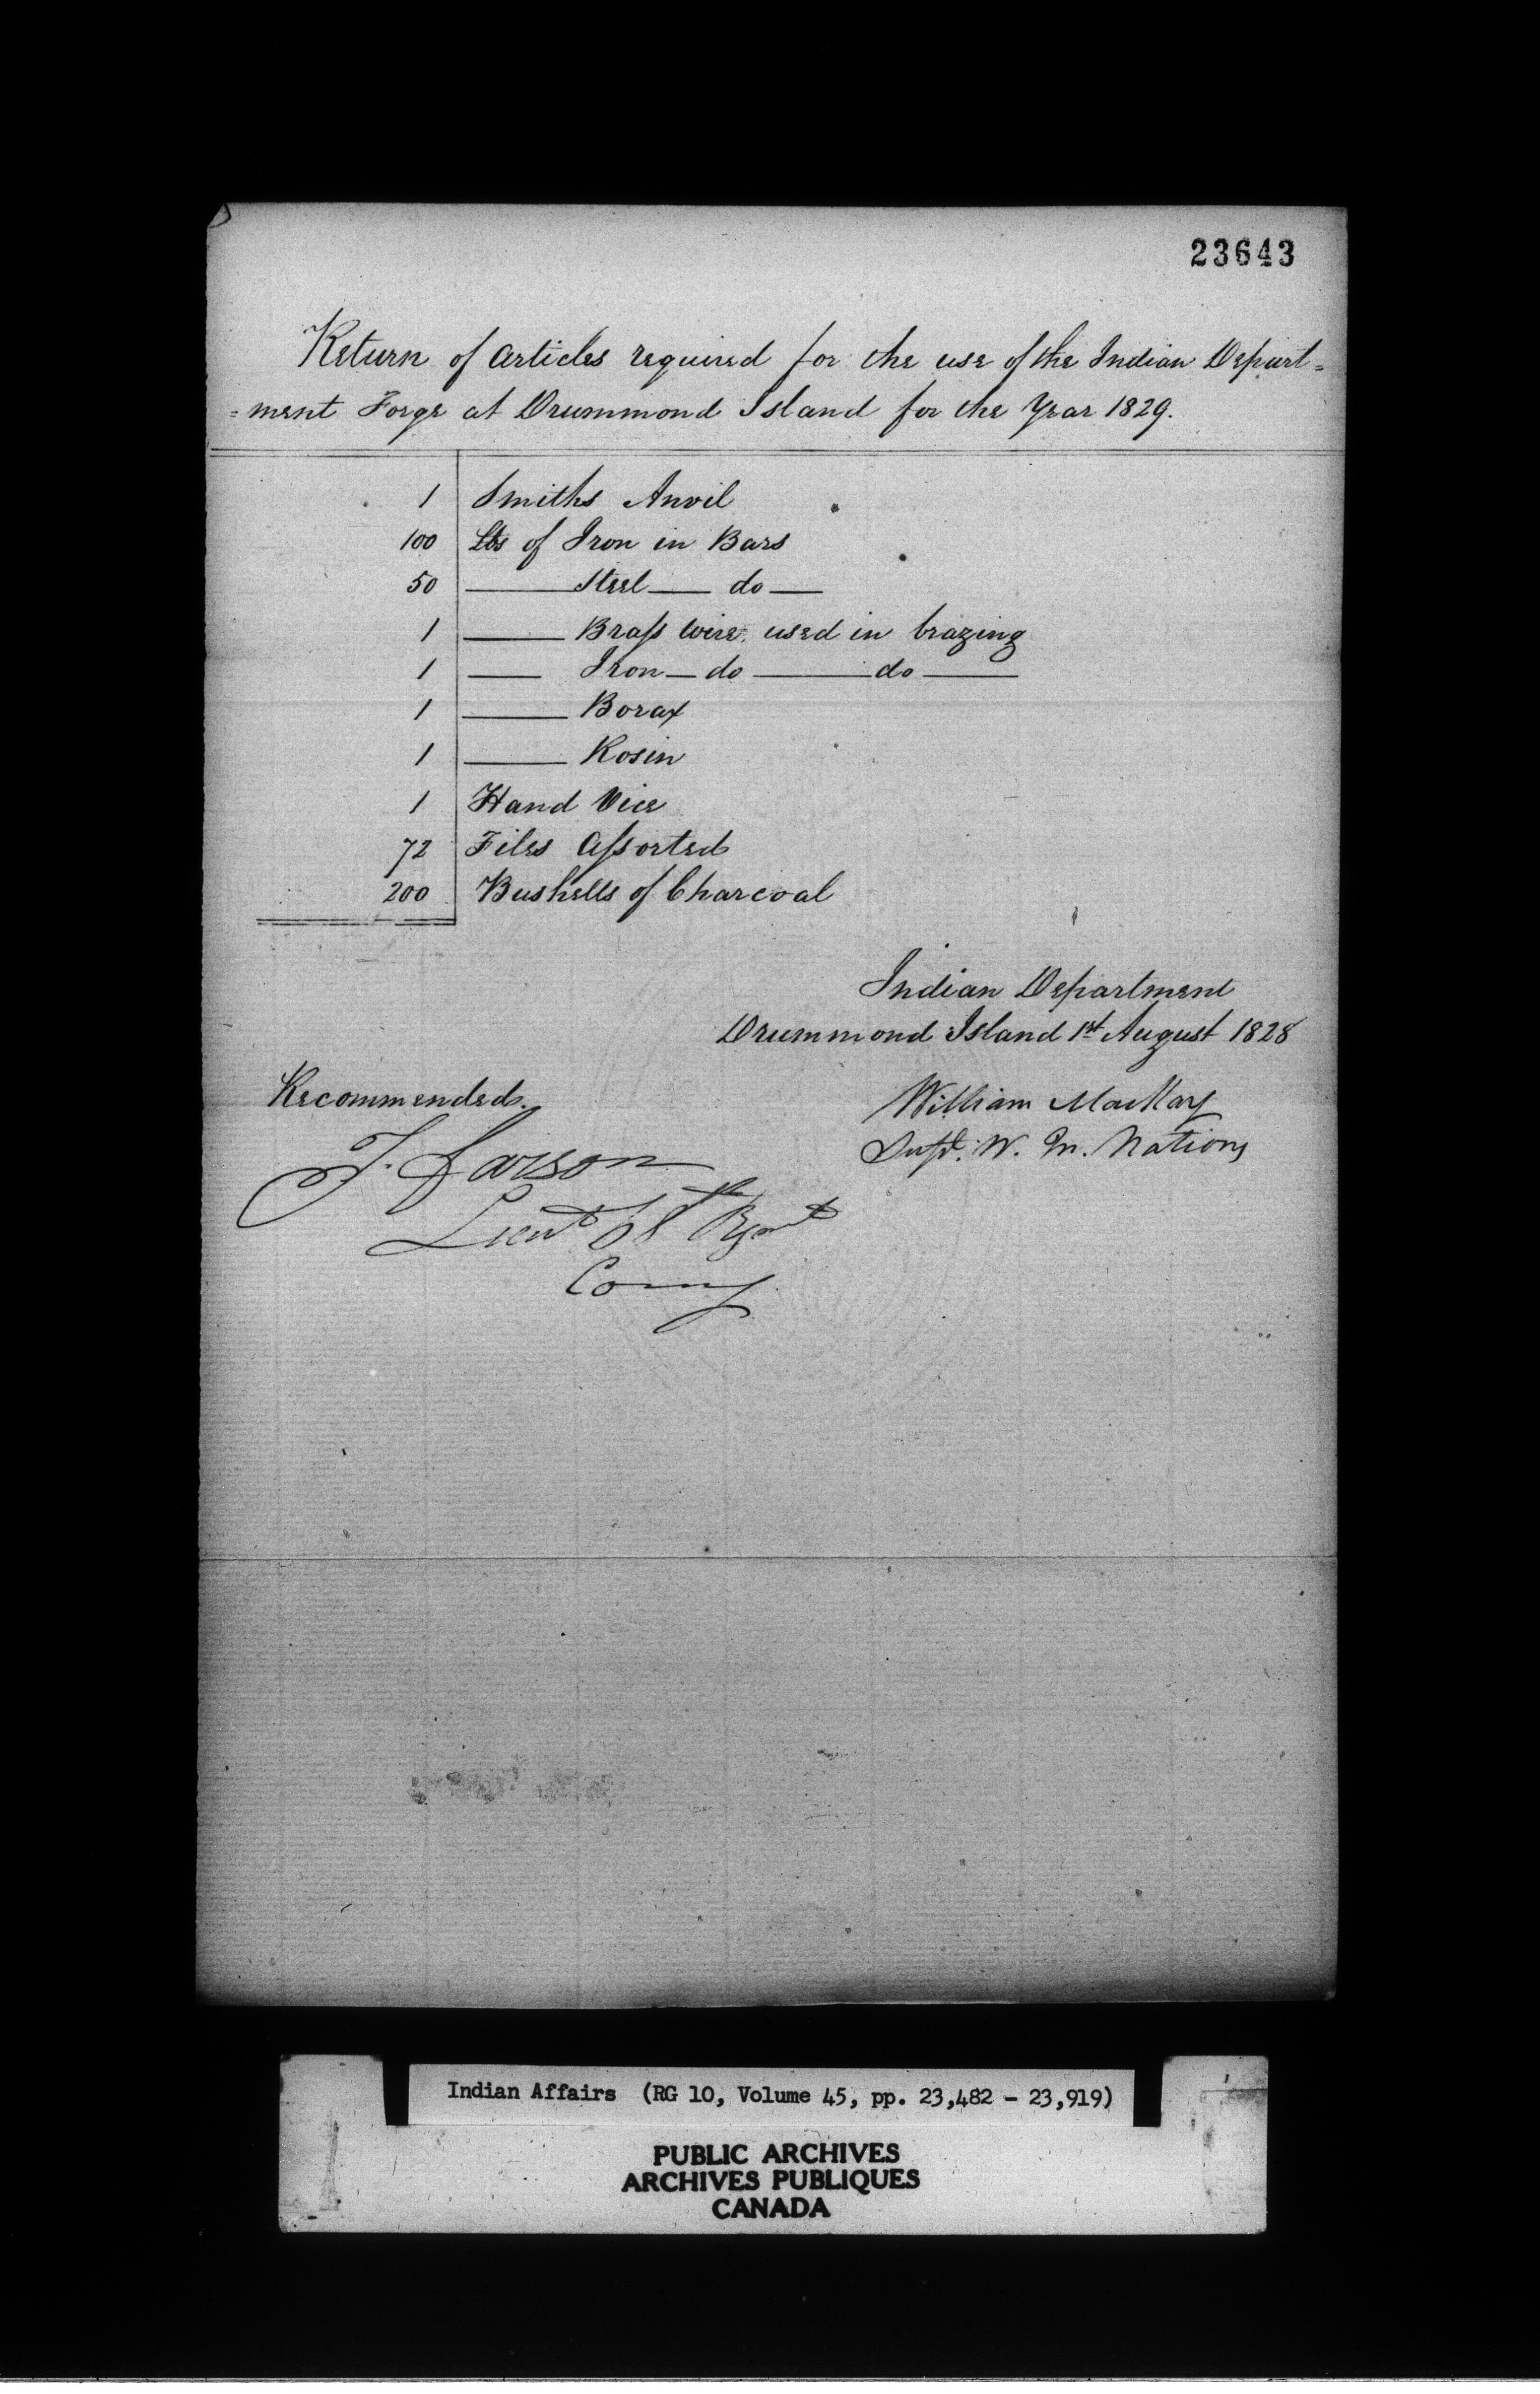 23643
Return of articles required for the use of the Indian Depart=
=ment Forge at Drummond Island for the Year 1829.
1 Smiths Anvil
100 Lbs of Iron in Bars
50 —— Steel — do —
1 —— Braſs Wire used in brazing
1 —— Iron — do —— do ——
1 —— Borax
1 —— Rosin
1 Hand Vice
72 Files Aſsorted
200 Bushells of Charcoal
Indian Department
Drummond Island 1st August 1828
Recommended.
William MacKay
Supd. W. In. Nations
Lieut 68th Regmt
Comg
Indian Affairs (RG 10, Volume 45, pp. 23,482 - 23,919)
PUBLIC ARCHIVES
ARCHIVES PUBLIQUES
CANADA